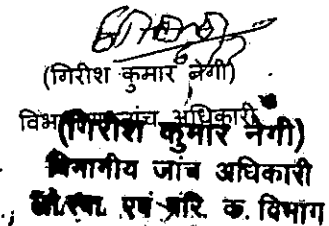 (गिरीश कुमार नेगी)
जांच अधिकारी
(गिरीश कुमार नेगी)
विभागीय जांच अधिकारी
एवं परि. क. विभाग